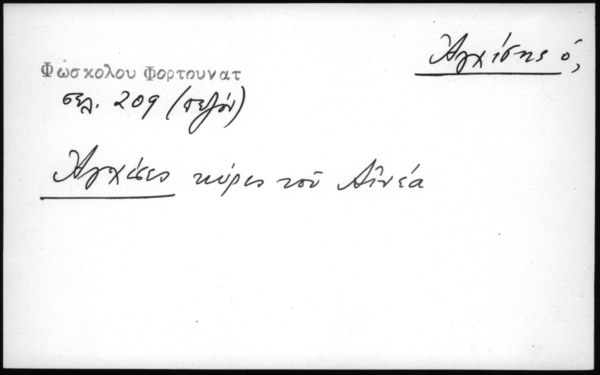 Ἀγχίσης ὁ,
Φώσκολου Φορτουνατ
σελ. 209 (πεζόν)
Ἀγχίσες κύρις τοῦ Αἰνέα